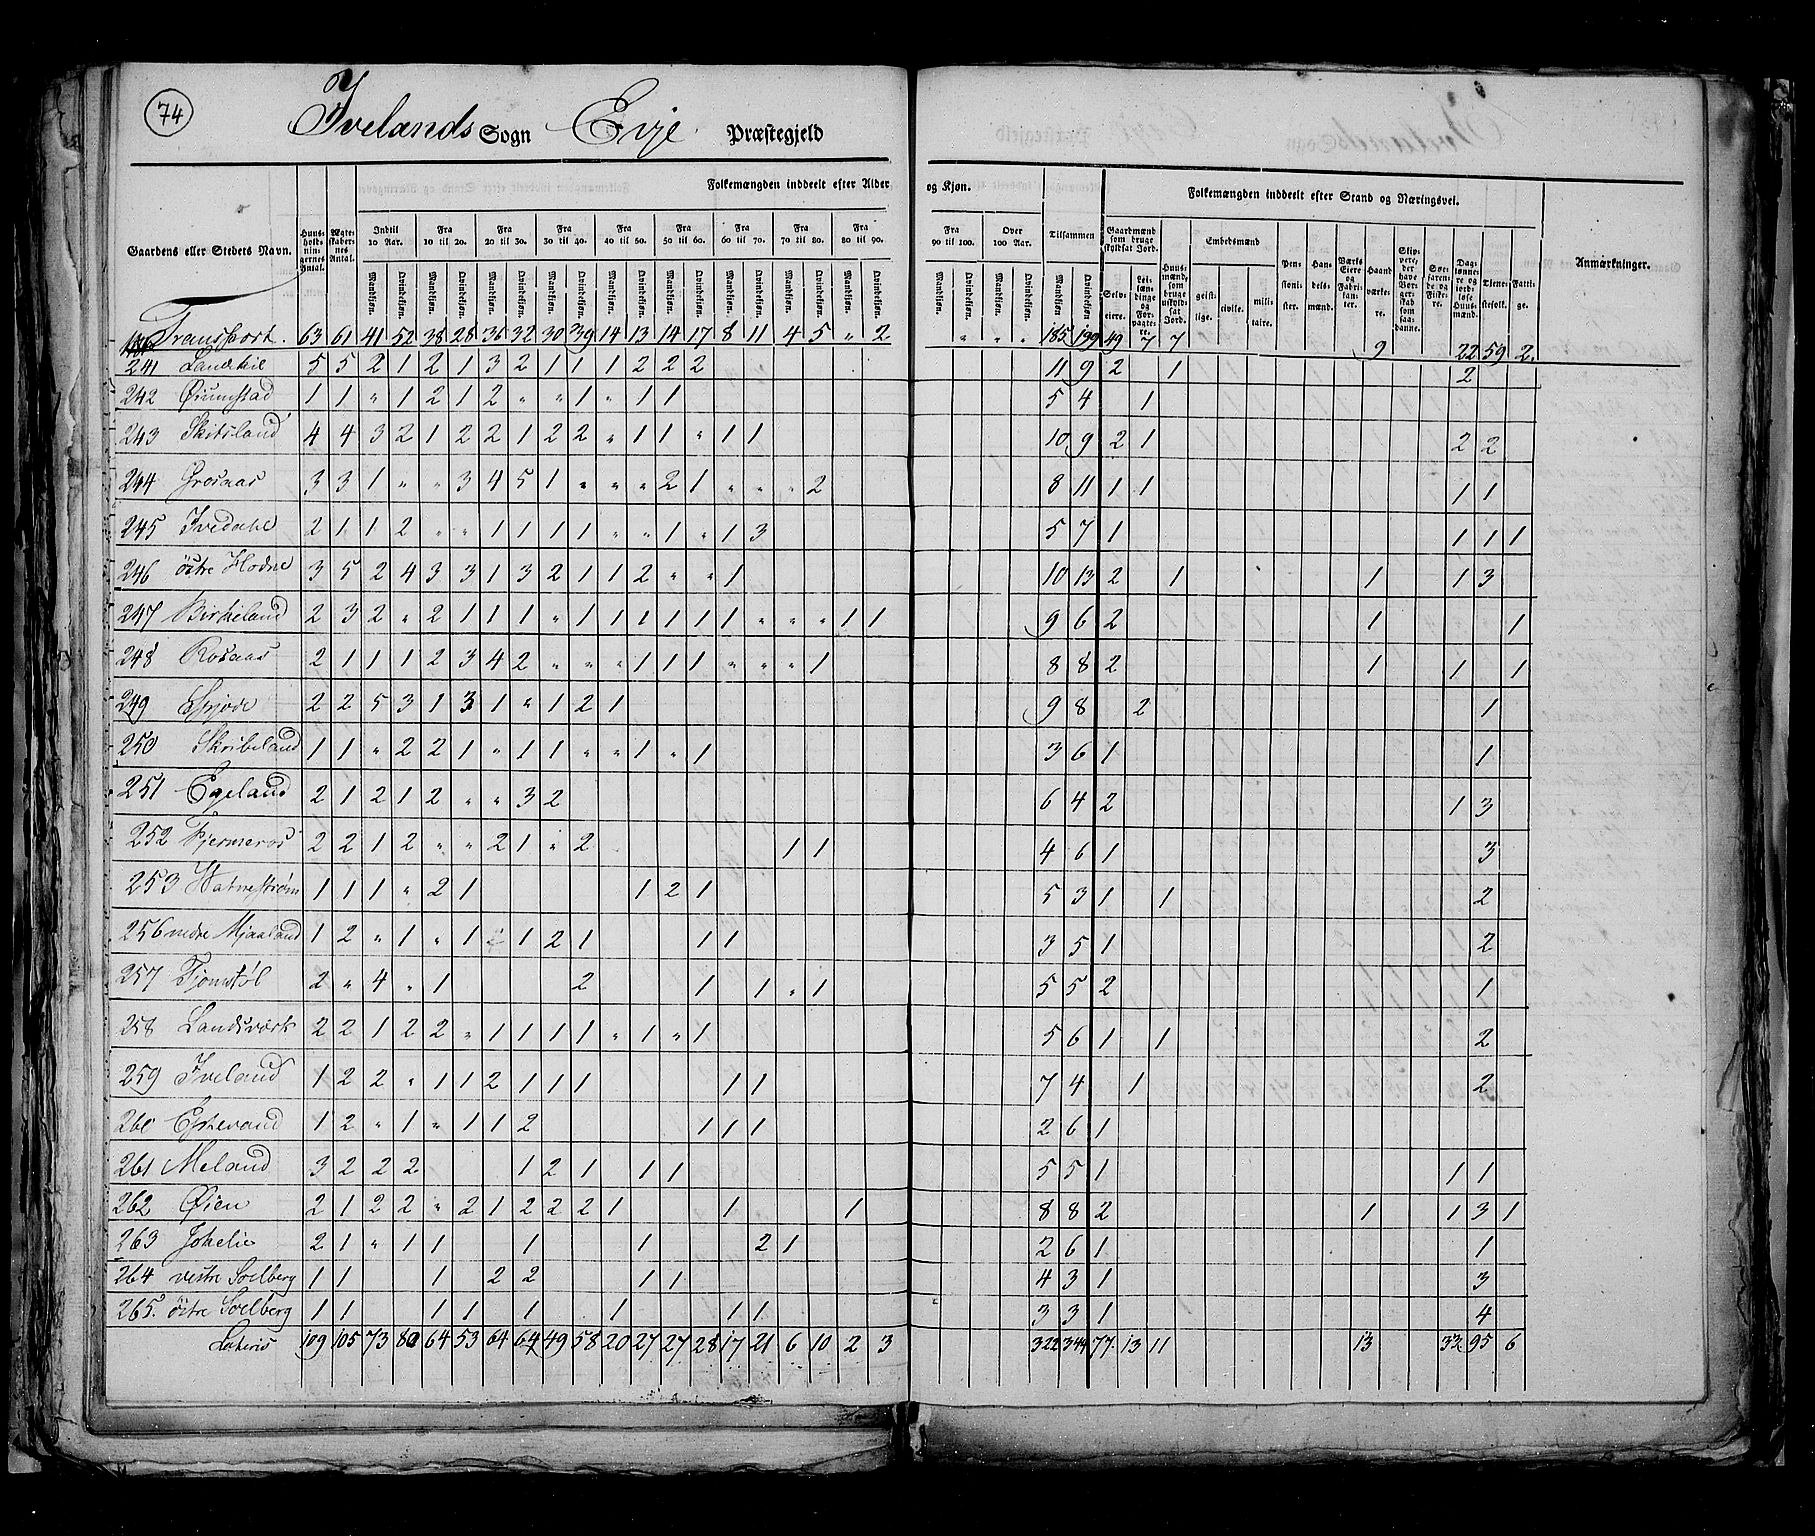 74
Ivelands Sogn Evje Præstegjeld
Folkemængden inddeelt efter Alder og Kjøn.
Folkemængden inddeelt efter Stand og Næringsvei.
Gaardens eller Stedets Navn.
Huus-holdnin-gernes Antal.
Ægte-skaber-nes Antal.
Indtil 10 Aar.
Fra 10 til 20.
Fra 20 til 30.
Fra 30 til 40.
Fra 40 til 50.
Fra 50 til 60.
Fra 60 til 70.
Fra 70 til 80.
Fra 80 til 90.
Fra 90 til 100.
Over 100 Aar.
Tilsammen
Gaardmænd som bruge skyldsat Jord.
Embedsmænd
Anmærkninger.
Mandkjøn. Qvindekjøn.
Selv-eiere. Lei-lændinge og For-pagtere. Huus-mænd, som bruge uskyld-sat Jord. geist-lige. civile. mili-taire. Pen-sioni-ster. Han-dels-mænd. Værks Eiere og Fabri-kanter. Haand værke-re. Skip-pere, der have Bor-ger-skab og Saadanne. Søe-farende og Fiske-re. Dag-lønne-re og jord-løse Huus-mænd. Tjene-stefolk. Fatti-ge.
Transport. 63 61 41 52 38 28 36 32 30 39 14 13 14 17 8 11 4 5 " 2 " " " 185 199 49 7 7 9 22 59 2
241 5 5 2 1 2 1 3 2 1 1 1 2 2 2 11 9 2 1 2
242 1 1 " 1 2 1 2 " " 1 " 1 1 5 4 1
243 Skitsland 4 4 3 2 1 2 2 1 2 2 " 1 1 " 1 1 10 9 2 1 2 2
244 Grosaas 3 3 1 " " 3 4 5 1 " " " 2 1 " " " 2 8 11 1 1 1 1
245 Ivedahl 2 1 1 2 " " 1 1 1 1 " " 1 " 1 3 5 7 1 1 1 1
246 östre Hodne 3 5 2 4 3 3 1 3 2 1 1 2 " " 1 10 13 2 1 1 1 3
247 Birkeland 2 3 2 " 2 1 1 1 " 1 1 1 1 1 1 " " " 1 1 9 6 2 1 1
248 Rosaas 2 1 1 1 2 3 4 2 " " " 1 1 1 " " " 1 8 8 2 1 1 1
249 2 2 5 3 1 3 1 " 1 2 1 9 8 2 1
250 Skribeland 1 1 " 2 2 1 " 1 1 " " 1 " 1 3 6 1 1
251 Egeland 2 1 2 1 2 " " 3 2 6 4 2 1 3
252 Fjermeros 2 2 1 2 " " 2 1 " 2 1 1 4 6 1 3
253 Watnestrøm 1 1 1 " 2 1 1 2 1 5 3 1 1 2
256 nedre Mjaaland 1 2 " 1 " 1 1 2 1 1 1 3 5 1 2
257 Tjomstøl 2 " 4 " 1 2 1 1 " 1 5 5 2 1
258 Landsværk 2 2 1 2 2 " 1 1 1 1 " 1 " 1 5 6 1 1 2
259 Iveland 1 2 2 " 1 1 2 1 1 1 1 1 7 4 1 2
260 1 2 " 1 " 1 1 2 1 1 1 2 6 1
261 Meland 3 2 2 2 1 2 1 1 1 5 5 1 1 1
262 Øien 2 1 2 2 " 2 1 2 2 2 1 1 1 8 8 2 1 1 3 1
263 Jokelie 2 1 " 1 1 1 1 2 1 2 6 1 1
264 vestre Soelberg 1 1 1 2 2 1 1 4 3 1 3
265 östre Soelberg 1 1 1 1 1 1 1 1 3 3 1 4
Lateris 109 105 73 80 64 53 64 64 49 58 20 27 27 28 17 21 6 10 2 3 322 344 77 13 11 13 33 95 6